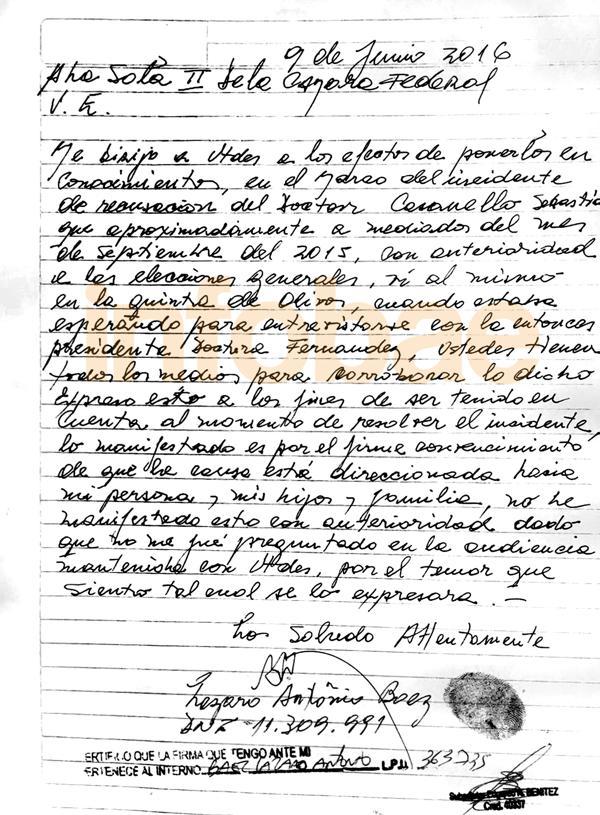 9 de Junio 2016
A la Sala II de la Camara Federal
V. E.
Me dirijo a Udes a los efectos de ponerlos en
conocimientos, en el Marco del incidente
de recusacion del Doctor Casanello Sebastia
que aproximadamente a mediados del mes
de septiembre del 2015, con anterioridad
a las elecciones generales, vi al mismo
en la quinta de Olivos, cuando estaba
esperando para entrevistarse con la entonces
presidenta Doctora Fernandez, Ustedes tienen
todos los medios para corroborar lo dicho
Expreso esto a los fines de ser tenido en
cuenta al momento de resolver el incidente,
lo manifestado es por el firme convencimiento
de que la causa está direccionada hacia
mi persona y mis hijos y familia, no he
manifestado esto con anterioridad dado
que no me fué preguntado en la audiencia
mantenida con Udes, por el temor que
siento tal cual se lo expresara. —
Los Saludo Attentamente
Lazaro Antonio Baez
DNI - 11.309.991
ERTIFICO QUE LA FIRMA QUE TENGO ANTE MI
ERTENECE AL INTERNO BAEZ LAZARO ANTONIO L.P.U 363.735
BENITEZ
Cred. 40337
infobae